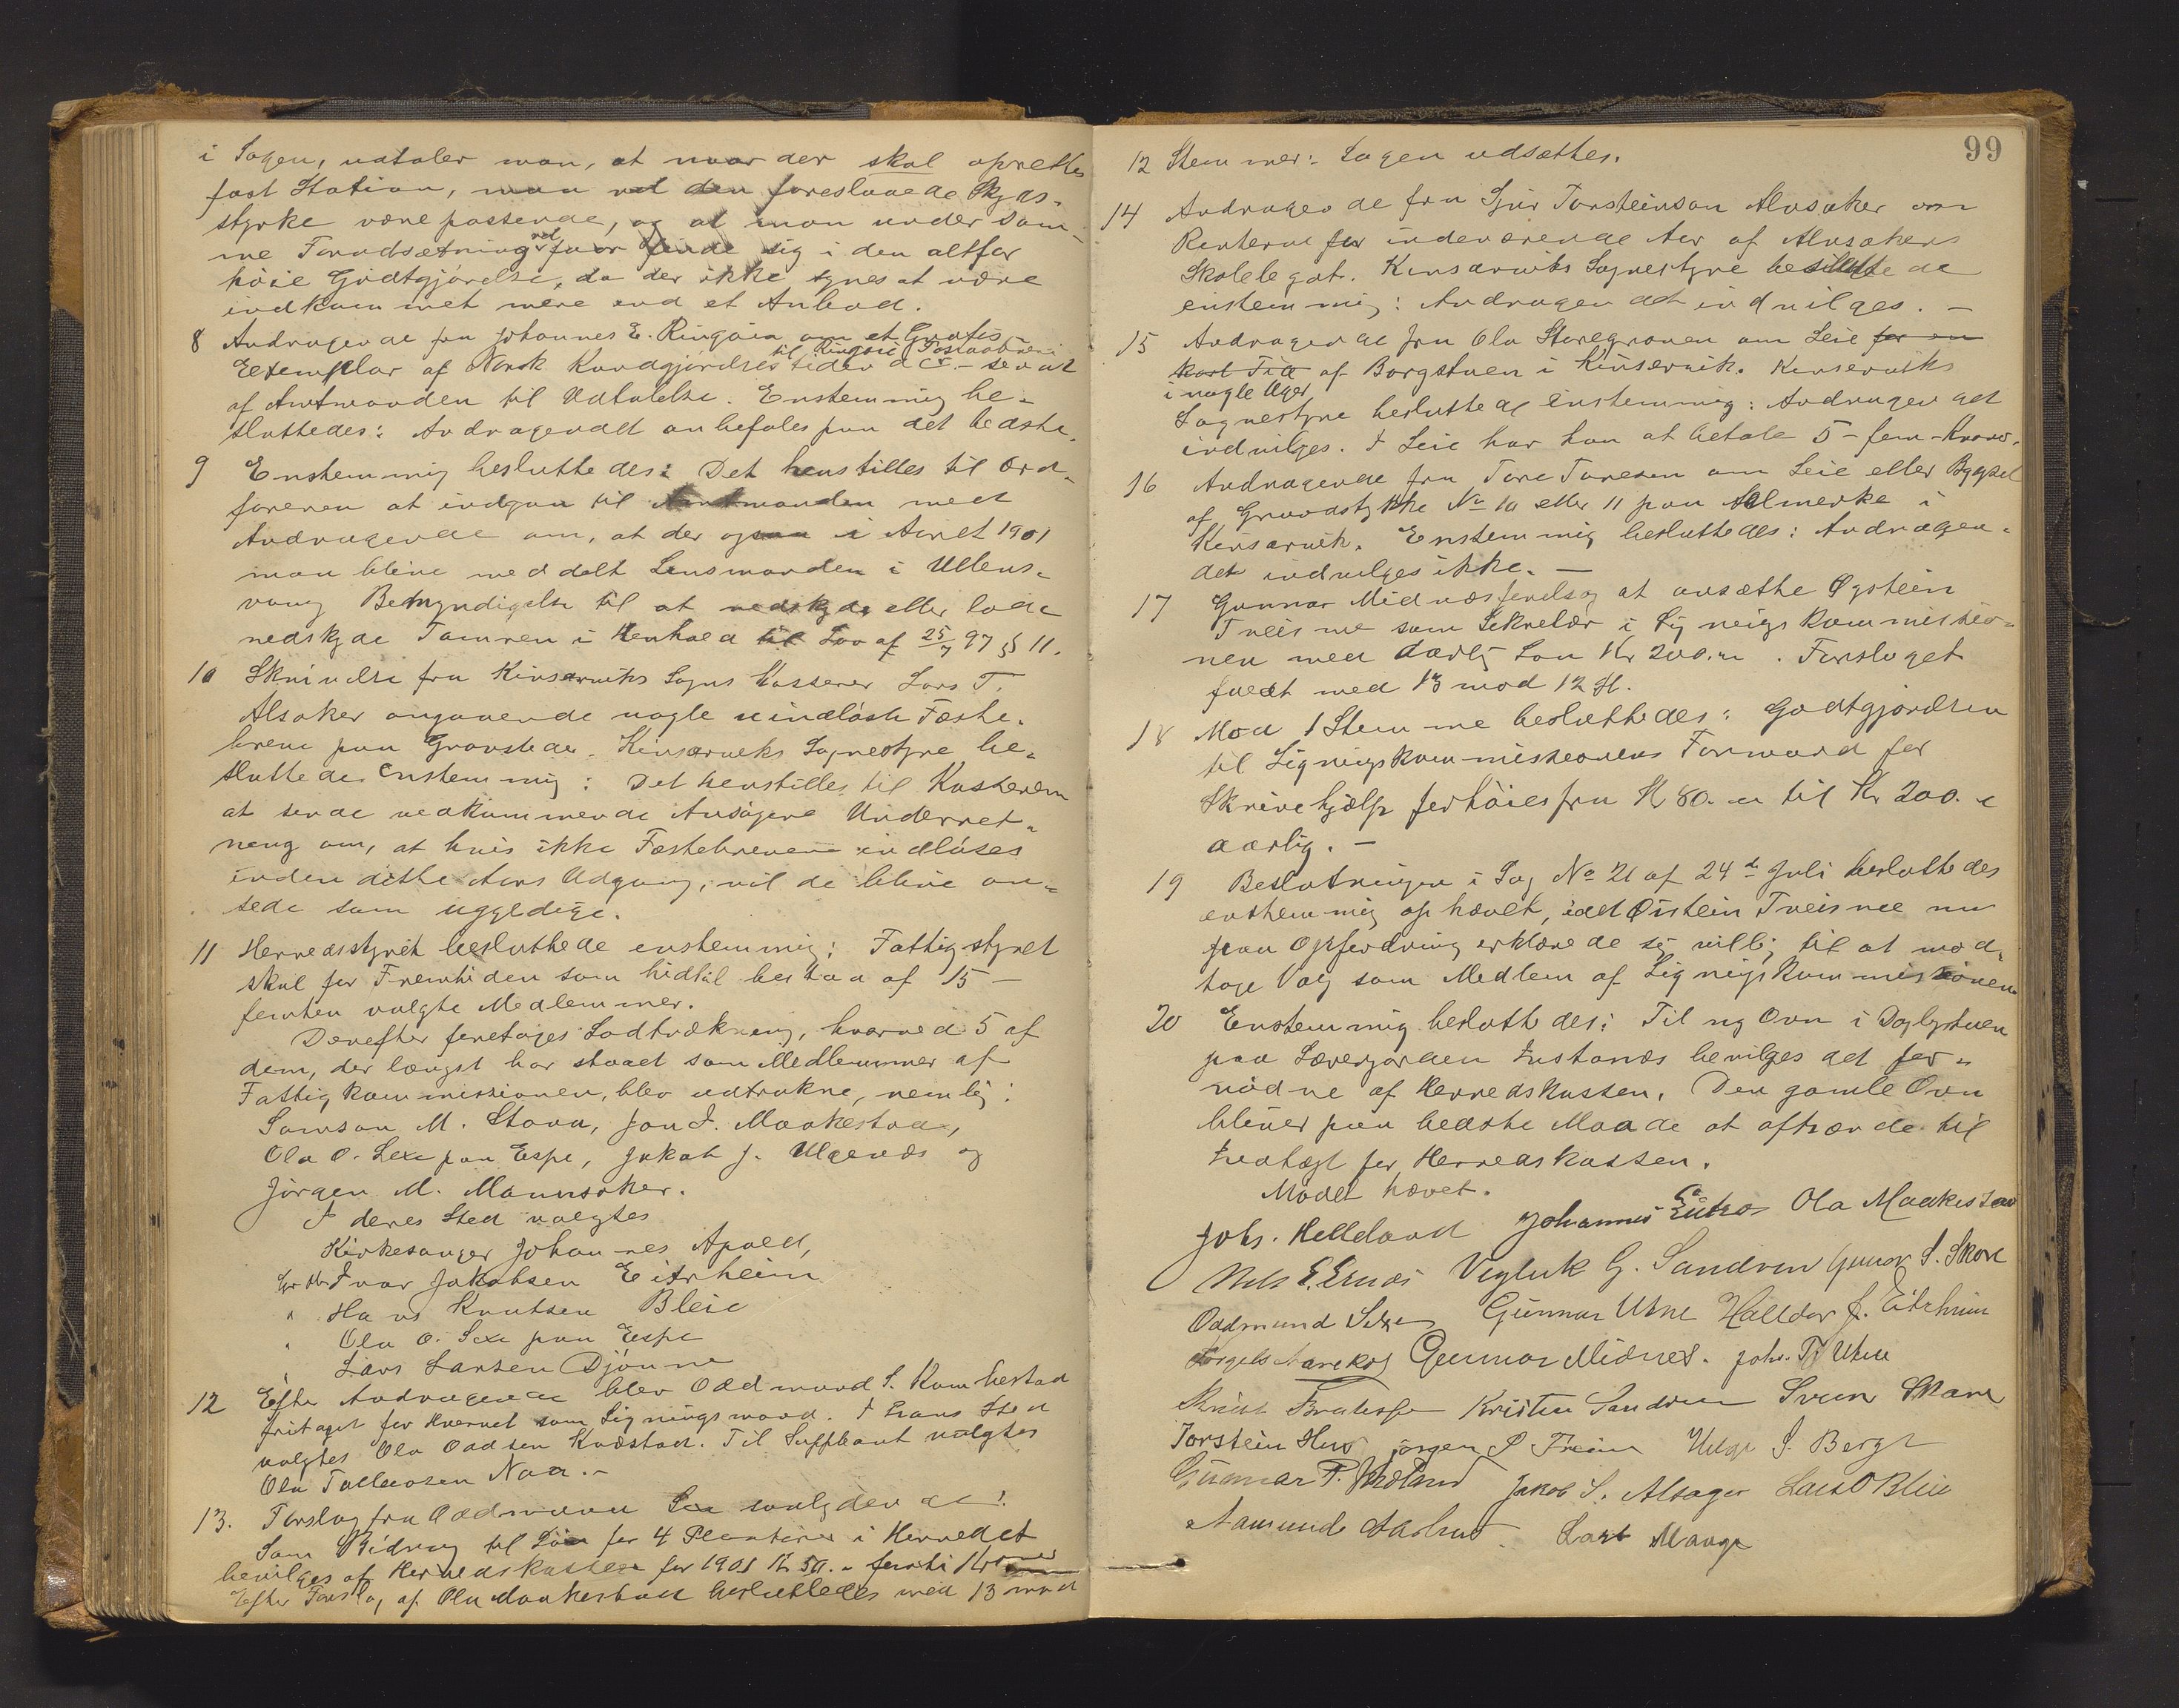 i Sagen, udtaler man, at naar der skal oprettes
fast Station, maa vel den foreslaaede Skyds-
styrke være passende, og at man under sam-
me Forudsætning vel faar finde sig i den altfor
høie Godtgjørelse, da der ikke synes at være
indkommet mere end et Anbud.
8 Andragende fra Johannes E. Ringøien om et Gratis
til Ringøie Postaabneri
Exemplar af Norsk Kundgjørelsestidende - sendt
af Amtmanden til Udtalelse. Enstemmig be-
sluttedes: Andragendet anbefales paa det bedste.
9 Enstemmig besluttedes: Det henstilles til Ord-
føreren at indgaa til Amtmanden med
Andragende om, at der ogsaa i Aaret 1901
maa blive meddelt Lensmanden i Ullens-
vang Bemyndigelse til at nedskyde eller lade
nedskyde Tamren i Henhold til Lov af 25/7 97 § 11.
10 Skrivelse fra Kinserviks Sogns Kasserer Lars T.
Alsaker angaaende nogle uindløste Fæste-
breve paa Gravsteder. Kinserviks Sognestyre be-
sluttede Enstemmig: Det henstilles til Kassereren
at sende vedkommende Ansøgere Underret-
ning om, at hvis ikke Fæstebrevene indløses
inden dette Aars Udgang, vil de blive an-
sede som ugyldige.
11 Herredsstyret besluttede enstemmig: Fattigstyret
skal for Fremtiden som hidtil bestaa af 15 -
femten valgte Medlemmer.
Derefter foretoges Lodtrækning, hvorved 5 af
dem, der længst har staaet som Medlemmer af
Fattigkommissionen, blev udtrukne, nemlig:
Samson M. Stana, Jon J. Maakestad,
Ola O. Sexe paa Espe, Jakob J. Ulgenæs og
Jørgen M. Mannsaker.
I deres Sted valgtes
Kirkesanger Johannes Apold,
Grbr Ivar Jakobsen Eitrheim
" Hans Knutsen Bleie
" Ola O. Sexe paa Espe
" Lars Larsen Djønne
12 Efter Andragende blev Oddmund S. Kambestad
fritaget for Hvervet som Ligningsmand. I hans Sted
valgtes Ola Oddsen Kvæstad. Til Suppleant valgtes
Ola Tollevsen Naa. -
13. Forslag fra Oddmund
Som Bidrag til Løn for 4 i Herredet
bevilges af Herredskassen for 1901 Kr 50.- femti Kroner
Efter Forslag af Ola Maakestad besluttedes med 13 mod
99
12 Stemmer: Sagen udsættes.
14 Andragende fra Sjur Torsteinson Alvsaker om
Renterne for indeværende Aar af Alvsakers
Skolelegat. Kinserviks Sognestyre besluttede
enstemmig: Andragendet indvilges. -
15 Andragende fra Ola Storegraven om Leie for en
kort Tid af Borgstuen i Kinservik. Kinserviks
i nogle Uger
Sognestyre besluttede Enstemmig: Andragendet
indvilges. I Leie har han at betale 5 - fem - Kroner.
16 Andragende fra Tore Toresen om Leie eller Bygsel
af Grundstykke No 10 eller 11 paa Almenke i
Kinservik. Enstemmig besluttedes: Andragen-
det indvilges ikke. -
17 Gunnar Midnæs foreslog at ansætte Øystein
Tveisme som Sekretær i Ligningskommissio-
nen med aarlig Løn Kr 200.00. Forslaget
faldt med 13 mod 12 St.
18 Mod 1 Stemme besluttedes: Godtgjørelsen
til Ligningskommissionens Formand for
Skrivehjælp forhøies fra Kr 80.00 til Kr 200.00
aarlig. -
19 Beslutningen i Sag No 21 af 24de Juli besluttedes
enstemmig ophævet, idet Øistein Tveisme nu
paa Opfordring erklærede sig villig til at mod-
tage Valg som Medlem af Ligningskommissionen
20 Enstemmig besluttedes: Til ny Ovn i Daglystuen
paa Lærergarden Instanes bevilges det for-
nødne af Herredskassen. Den gamle Ovn
bliver paa bedste Maade at afhænde til
Indtægt for Herredskassen.
Mødet hævet.
Johs. Helleland Johannes Eitnes Ola Maakestad
Nels E. Ernæs Vigluk G. Sandven Gunnar S. Skare
Oddmund Sexe Gunnar Utne Halldor J. Eitrheim
Torgels Aarekol Gunnar Midnes. Johs. T. Utne
Knut Bratespe Kristen Sandven Svein Skare
Torstein Hus Jørgen P Freim Helge S. Berge
Gunnar P. Jaastad Jakob S. Alsager Lars O Bleie
Aamunde Aarhus. Lars Mauge